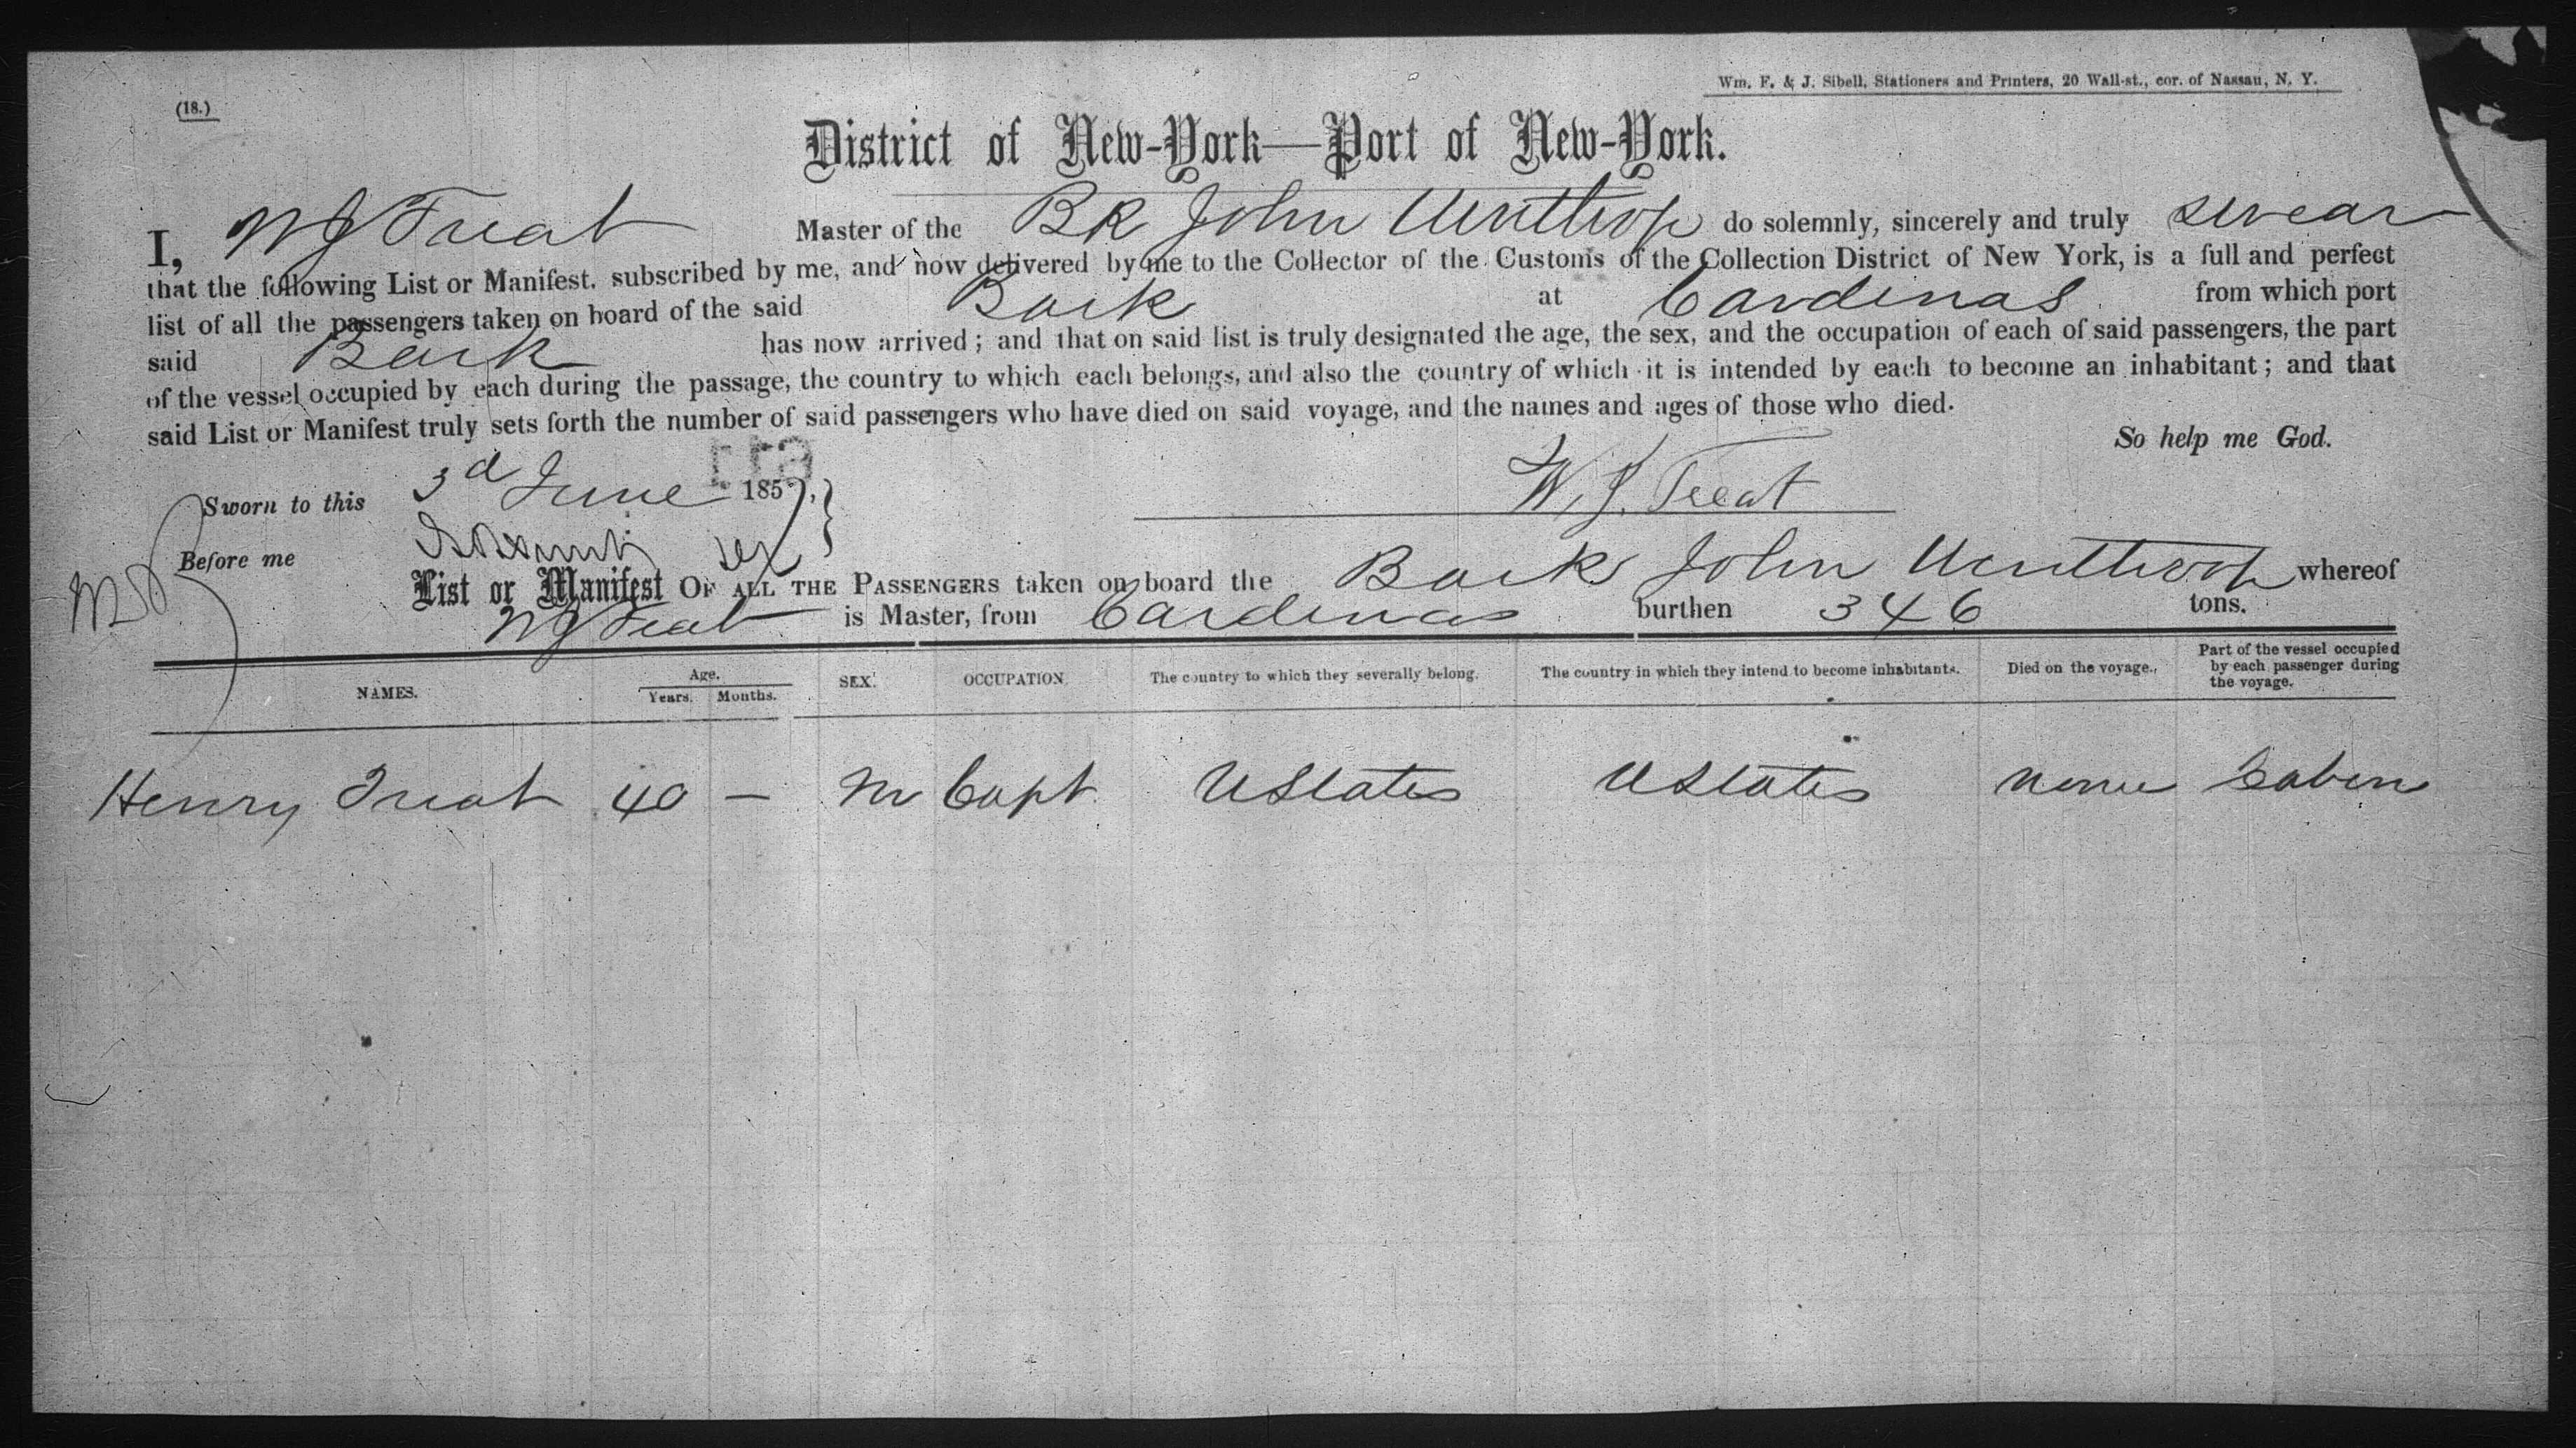 (18.)
Wm. F. & J. Sibell, Stationers and Printers, 20 Wall-st., cor. of Nassau, N. Y.
District of New-York—Port of New-York.
I, W J Treat Master of the Bk John Winthrop do solemnly, sincerely and truly swear
that the following List or Manifest. subscribed by me, and now delivered by me to the Collector of the Customs of the Collection District of New York, is a full and perfect
list of all the passengers taken on board of the said Bark at Cardenas from which port
said Bark has now arrived; and that on said list is truly designated the age, the sex, and the occupation of each of said passengers, the part
of the vessel occupied by each during the passage, the country to which each belongs, and also the country of which it is intended by each to become an inhabitant; and that
said List or Manifest truly sets forth the number of said passengers who have died on said voyage, and the names and ages of those who died.
So help me God.
Sworn to this 3d June 1857,
W. J. Treat
Before me
List or Manifest OF ALL THE PASSENGERS taken on board the Bark John Winthrop whereof
W J Treat is Master, from Cardenas burthen 346 tons.
NAMES. Age. Years. Months. SEX. OCCUPATION. The country to which they severally belong. The country in which they intend to become inhabitants. Died on the voyage. Part of the vessel occupied by each passenger during the voyage.
Henry Treat 40 — M Capt UStates UStates None Cabin